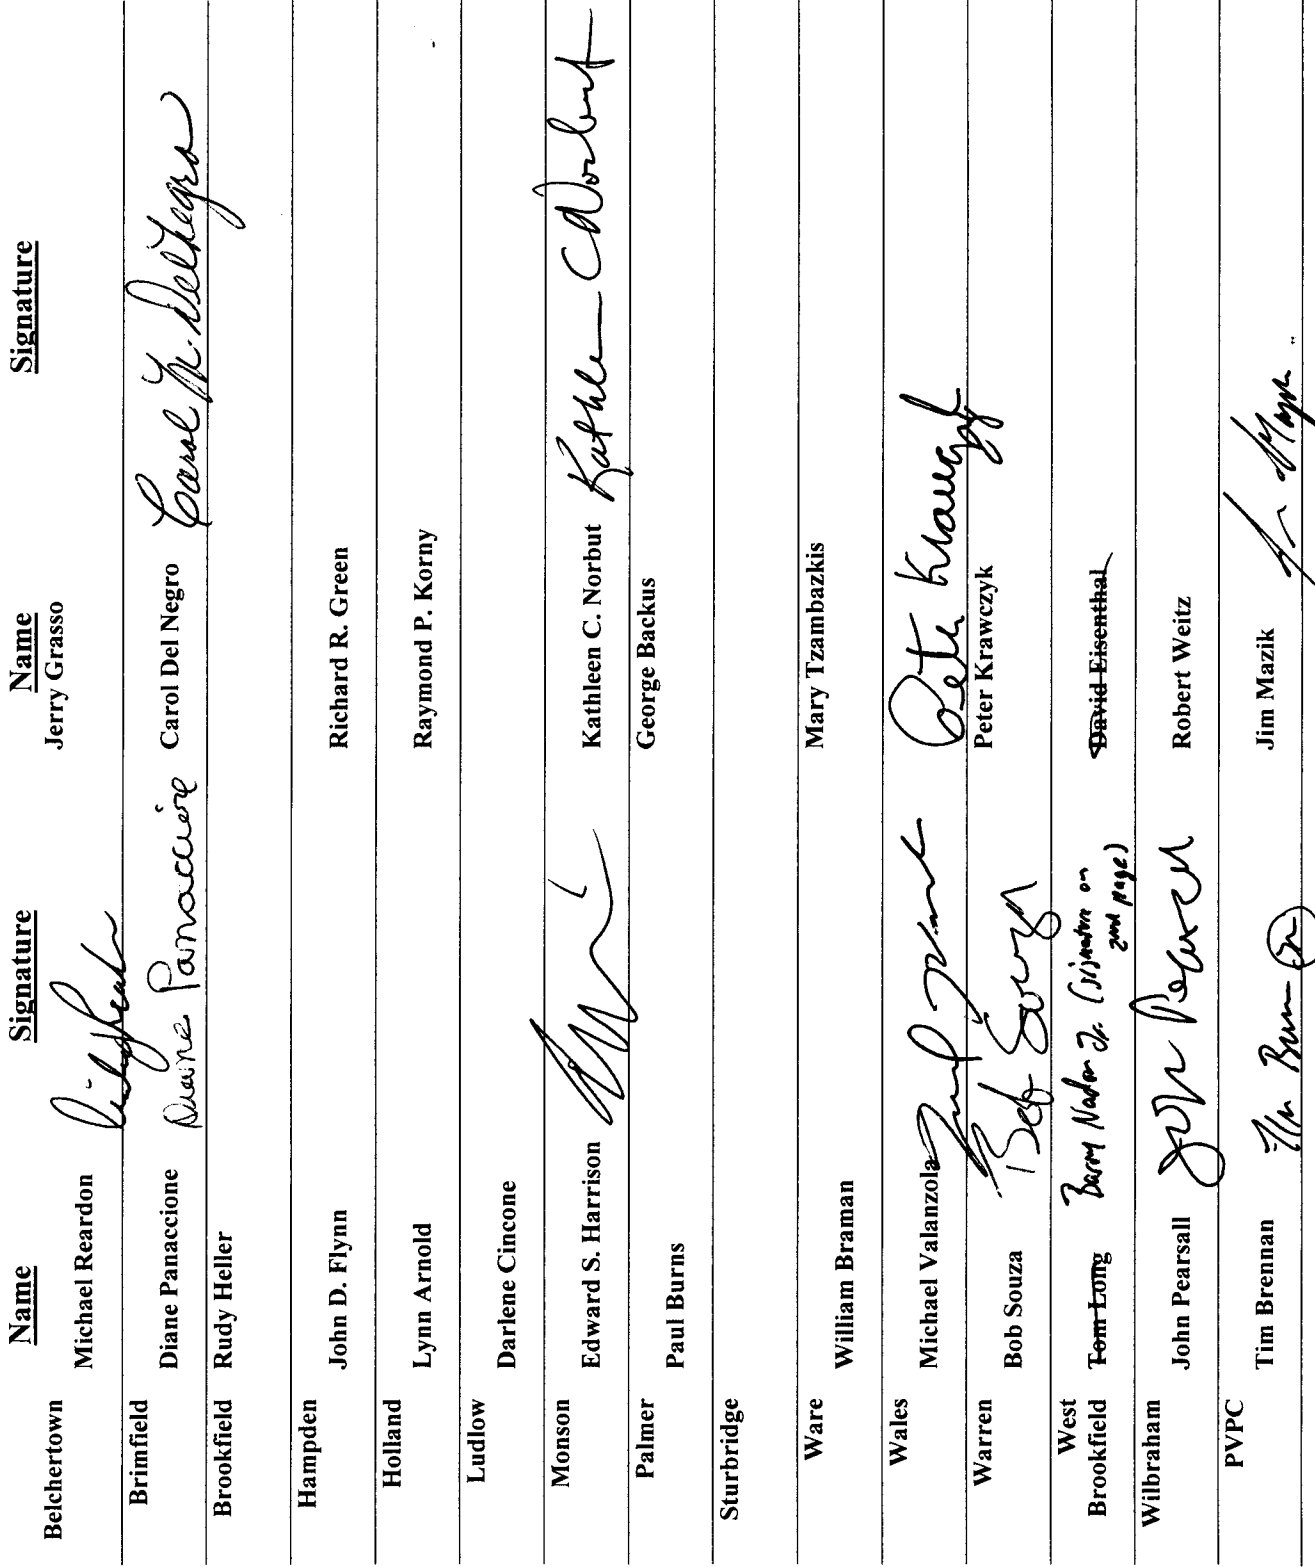 Name Signature Name Signature
Belchertown Michael Reardon Jerry Grasso
Brimfield Diane Panaccione Diane Panaccione Carol Del Negro Carol M. DelNegro
Brookfield Rudy Heller
Hampden John D. Flynn Richard R. Green
Holland Lynn Arnold Raymond P. Korny
Ludlow Darlene Cincone
Monson Edward S. Harrison Kathleen C. Norbut Kathleen C Norbut
Palmer Paul Burns George Backus
Sturbridge
Ware William Braman Mary Tzambazkis
Wales Michael Valanzola
Warren Bob Souza Bob Souza Peter Krawczyk Peter Krawczyk
West
Brookfield Tom Long Barry Nadon Jr. (signature on David Eisenthal
2nd page)
Wilbraham John Pearsall John Pearsall Robert Weitz
PVPC Tim Brennan Tim Brennan Jim Mazik